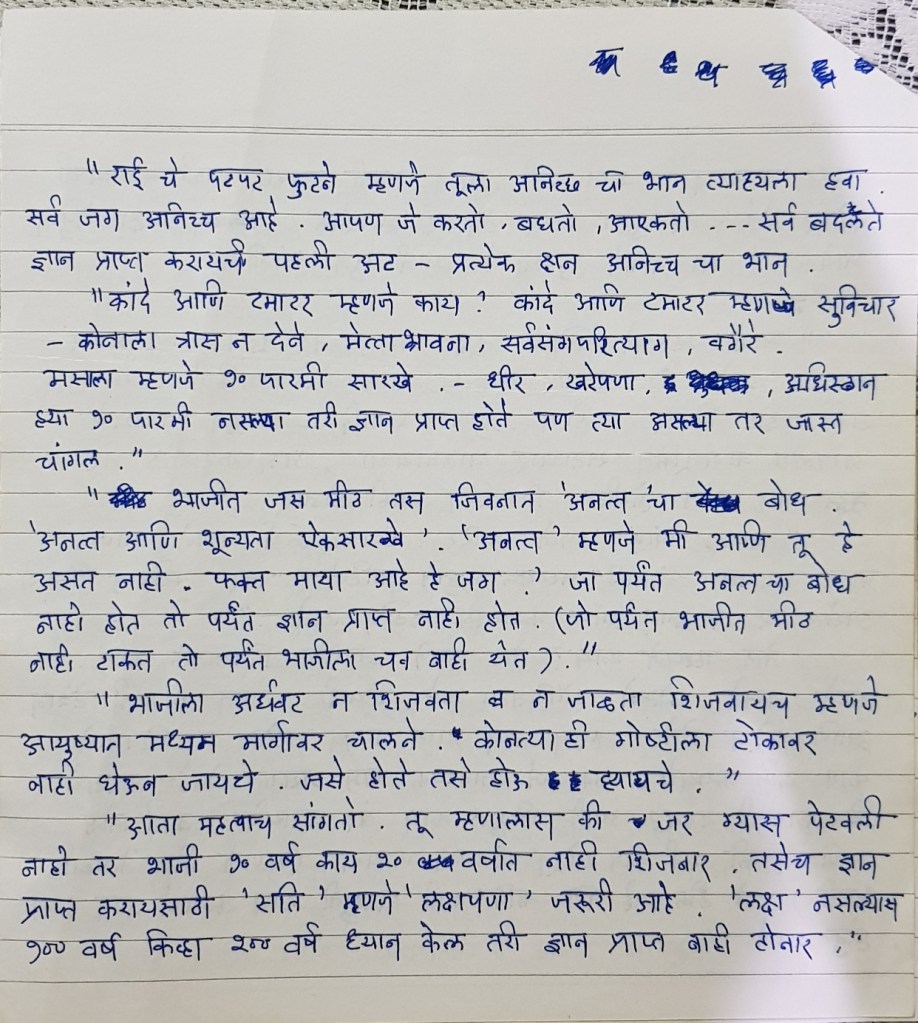 "राई चे पटपट फुटने म्हणजे तूला अनिच्छ चा भान त्याहयला हवा.
सर्व जग अनिच्च आहे. आपण जे करतो, बघतो, आएकतो ---. सर्व बदलते
ज्ञान प्राप्त करायची पहली अट - प्रत्येक क्षन अनिच्च चा भान.
"कांदे आणि टमाटर म्हणजे काय? कांदे आणि टमाटर म्हणजे सुविचार
- कोनाला त्रास न देने, मेत्ता भावना, सर्वसंग परित्याग, वगैरे.
मसाला म्हणजे १० पारमी सारखे. - धीर, खरेपणा, , अधिस्ठान
ह्या १० पारमी नसल्या तरी ज्ञान प्राप्त होते पण त्या असल्या तर जास्त
चांगल."
" भाजीत जस मीठ तस जिवनात 'अनत्त' चा बोध.
'अनत्त आणि शून्यता ऐकसारखे'. 'अनत्त' म्हणजे मी आणि तू हे
असत नाही. फक्त माया आहे हे जग.' जा पर्यंत अनत्त चा बोध
नाही होत तो पर्यंत ज्ञान प्राप्त नाही होत. (जो पर्यंत भाजीत मीठ
नाही टाकत तो पर्यंत भाजीला चव नाही येत)."
"भाजीला अर्धवट न शिजवता व न जाळता शिजवायच म्हणजे
आयुष्यात मध्यम मार्गावर चालने. कोनत्या ही गोष्टीला टोकावर
नाही घेऊन जायचे. जसे होते तसे होऊ द्यायचे."
"आता महत्वाच सांगतो. तू म्हणालास की जर ग्यास पेटवली
नाही तर भाजी १० वर्ष काय २० वर्षात नाही शिजनार. तसेच ज्ञान
प्राप्त करायसाठी 'सति' म्हणजे 'लक्षपणा' जरूरी आहे. 'लक्ष' नसल्यास
१०० वर्ष किंव्हा २०० वर्ष ध्यान केल तरी ज्ञान प्राप्त नाही होनार."